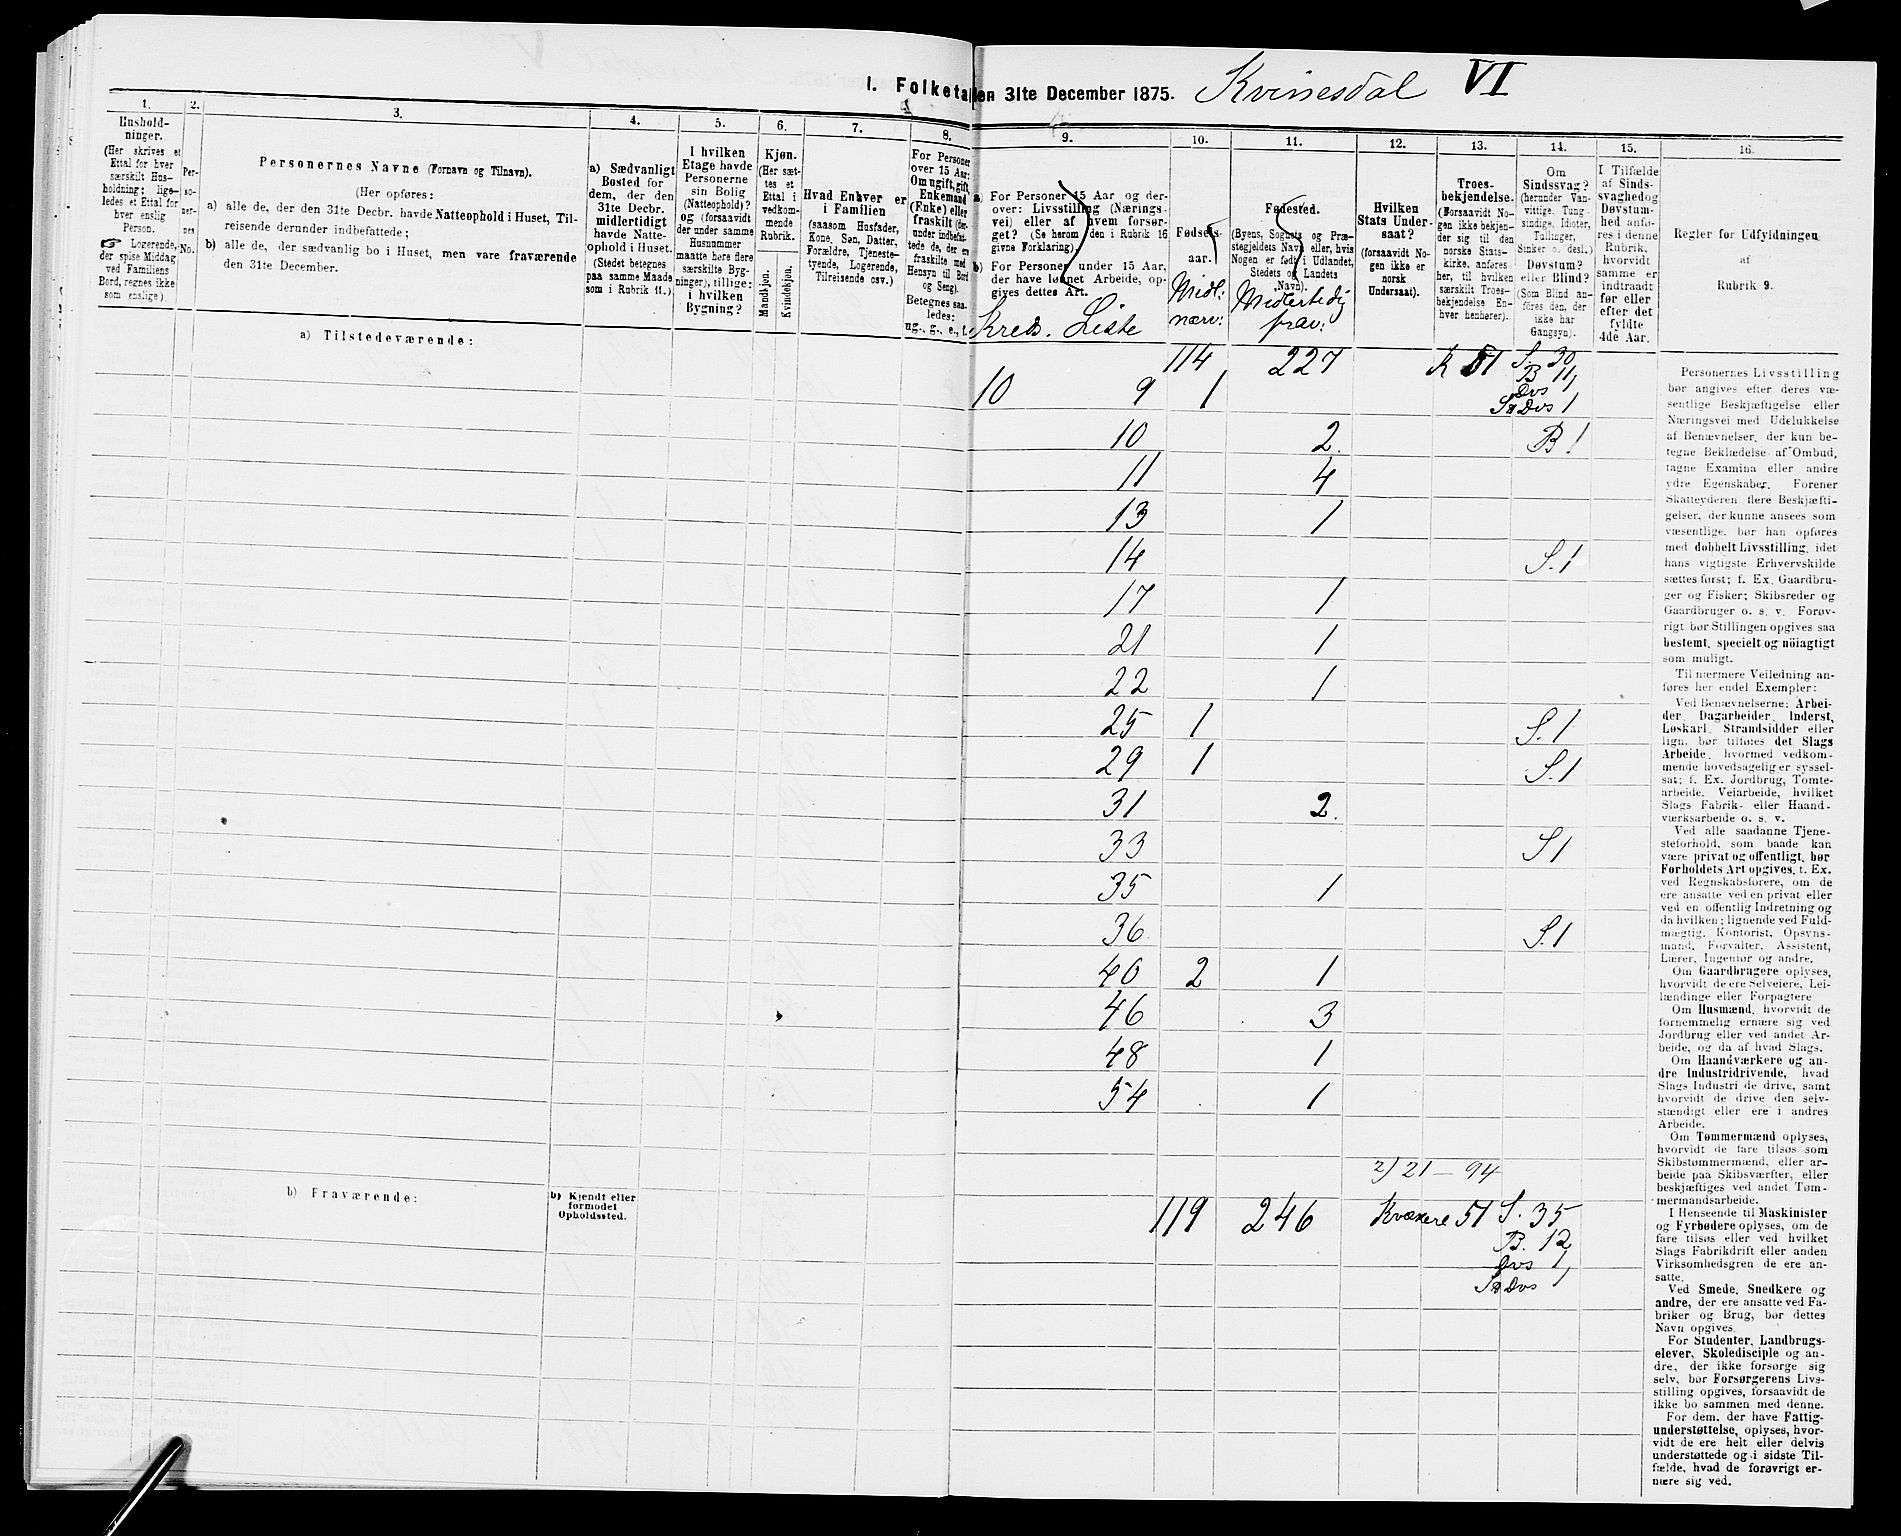 I. Folketallen 31te December 1875. Kvinesdal VI
1.
Hushold-
ninger.
(Her skrives et
Ettal for hver
særskilt Hus-
holdning; lige-
ledes et Ettal for
hver enslig
Person.
☞ Logerende,
der spise Middag
ved Familiens
Bord, regnes ikke
som enslige.)
2.
Per-
so-
ner-
nes
No.
3.
Personernes Navne (Fornavn og Tilnavn).
(Her opføres:
a) alle de, der den 31te Decbr. havde Natteophold i Huset, Til-
reisende derunder indbefattede;
b) alle de, der sædvanlig bo i Huset, men vare fraværende
den 31te December.
4.
a) Sædvanligt
Bosted for
dem, der den
31te Decbr.
midlertidigt
havde Natte-
ophold i Huset.
(Stedet betegnes
paa samme Maade
som i Rubrik 11.)
5.
I hvilken
Etage havde
Personerne
sin Bolig
(Natteophold)?
og (forsaavidt
der under samme
Husnummer
maatte høre flere
særskilte Byg-
ninger), tillige:
i hvilken
Bygning?
6.
Kjøn.
(Her sæt-
tes et
Ettal i
vedkom-
mende
Rubrik.
Mandkjøn.
Kvindekjøn.
7.
Hvad Enhver er
i Familien
(saasom Husfader,
Kone, Søn, Datter,
Forældre, Tjeneste-
tyende, Logerende,
Tilreisende osv.)
8.
For Personer
over 15 Aar:
Om ugift, gift,
Enkemand
(Enke) eller
fraskilt (der-
under indbefat-
tede de, der ere
fraskilte med
Hensyn til Bord
og Seng).
Betegnes saa-
ledes:
ug., g., e., f.
9.
a) For Personer 15 Aar og der-
over: Livsstilling (Nærings-
vei) eller af hvem forsør-
get? (Se herom den i Rubrik 16
givne Forklaring).
b) For Personer under 15 Aar,
der have lønnet Arbeide, op-
gives dettes Art.
Kreds. Liste
10.
Fødsels-
aar.
Midl:
nærv:
11.
Fødested.
(Byens, Sognets og Præ-
stegjeldets Navn eller, hvis
Nogen er født i Udlandet,
Stedets og Landets
Navn).
Midlertidig
frav:
12.
Hvilken
Stats Under-
saat?
(forsaavidt No-
gen ikke er
norsk
Undersaat).
13.
Troes-
bekjendelse.
(Forsaavidt No-
gen ikke bekjen-
der sig til den
norske Stats-
kirke, anføres
her, til hvilken
særskilt Troes-
bekjendelse En-
hver henhører).
14.
Om
Sindssvag?
(herunder Van-
vittige, Tung-
sindige, Idioter,
Tullinger,
Sinker o. desl.)
Døvstum?
eller Blind?
(Som Blind an-
føres den, der
ikke har
Gangsyn).
15.
I Tilfælde
af Sinds-
svaghed og
Døvstum-
hed anfø-
res i denne
Rubrik,
hvorvidt
samme er
indtraadt
før eller
efter det
fyldte
4de Aar.
16.
Regler for Udfyldningen
af
Rubrik 9.
a) Tilstedeværende:
114 227 K 51 S. 30
B 11,
Dvs 1
S & Dvs 1
10 9 1
10 2. B 1
11 4
13 1
14 S. 1
17 1
21 1
22 1
25 1 S. 1
29 1 S. 1
31 2.
33 S 1
35 1
36 S. 1
40 2 1
46 3
48 1
54 1
2/21 – 94
b) Fraværende:
b) Kjendt eller
formodet
Opholdssted.
119 246 Kvækere 51 S. 35
B. 12,
Dvs 1,
S & Dvs 1
Personernes Livsstilling
bør angives efter deres væ-
sentlige Beskjæftigelse eller
Næringsvei med Udelukkelse
af Benævnelser, der kun be-
tegne Beklædelse af Ombud,
tagne Examina eller andre
ydre Egenskaber. Forener
Skatteyderen flere Beskjæfti-
gelser, der kunne ansees som
væsentlige, bør han opføres
med dobbelt Livsstilling, idet
hans vigtigste Erhvervskilde
sættes først; f. Ex. Gaardbru-
ger og Fisker; Skibsreder og
Gaardbruger o. s. v. Forøv-
rigt bør Stillingen opgives saa
bestemt, specielt og nöiagtigt
som muligt.
Til nærmere Veiledning an-
føres her endel Exempler:
Ved Benævnelserne: Arbei-
der, Dagarbeider, Inderst,
Løskarl, Strandsidder eller
lign. bør tilføies det Slags
Arbeide, hvormed vedkom-
mende hovedsagelig er syssel-
sat; f. Ex. Jordbrug, Tomte-
arbeide, Veiarbeide, hvilket
Slags Fabrik- eller Haand-
værksarbeide o. s. v.
Ved alle saadanne Tjene-
steforhold, som baade kan
være privat og offentligt, bør
Forholdets Art opgives, f. Ex.
ved Regnskabsførere, om de
ere ansatte ved en privat eller
ved en offentlig Indretning og
da hvilken; lignende ved Fuld-
mægtig, Kontorist, Opsyns-
mand, Forvalter, Assistent,
Lærer, Ingeniør og andre.
Om Gaardbrugere oplyses,
hvorvidt de ere Selveiere, Lei-
lændinge eller Forpagtere
Om Husmænd, hvorvidt de
fornemmelig ernære sig ved
Jordbrug eller ved andet Ar-
beide, og da af hvad Slags.
Om Haandværkere og an-
dre Industridrivende, hvad
Slags Industri de drive, samt
hvorvidt de drive den selv-
stændigt eller ere i andres
Arbeide.
Om Tømmermænd oplyses,
hvorvidt de fare tilsøs som
Skibstømmermænd, eller ar-
beide paa Skibsværfter, eller
beskjæftiges ved andet Tøm-
mermandsarbeide.
I Henseende til Maskinister
og Fyrbødere oplyses, om de
fare tilsøs eller ved hvilket
Slags Fabrikdrift eller anden
Virksomhedsgren de ere an-
satte.
Ved Smede, Snedkere og
andre, der ere ansatte ved Fa-
briker og Brug, bør dettes
Navn opgives.
For Studenter, Landbrugs-
elever, Skoledisciple og an-
dre, der ikke forsørge sig
selv, bør Forsørgerens Livs-
stilling opgives, forsaavidt de
ikke bo sammen med denne.
For dem, der have Fattig-
understøttelse, oplyses, hvor-
vidt de ere helt eller delvis
understøttede og i sidste Til-
fælde, hvad de forøvrigt er-
nære sig ved.